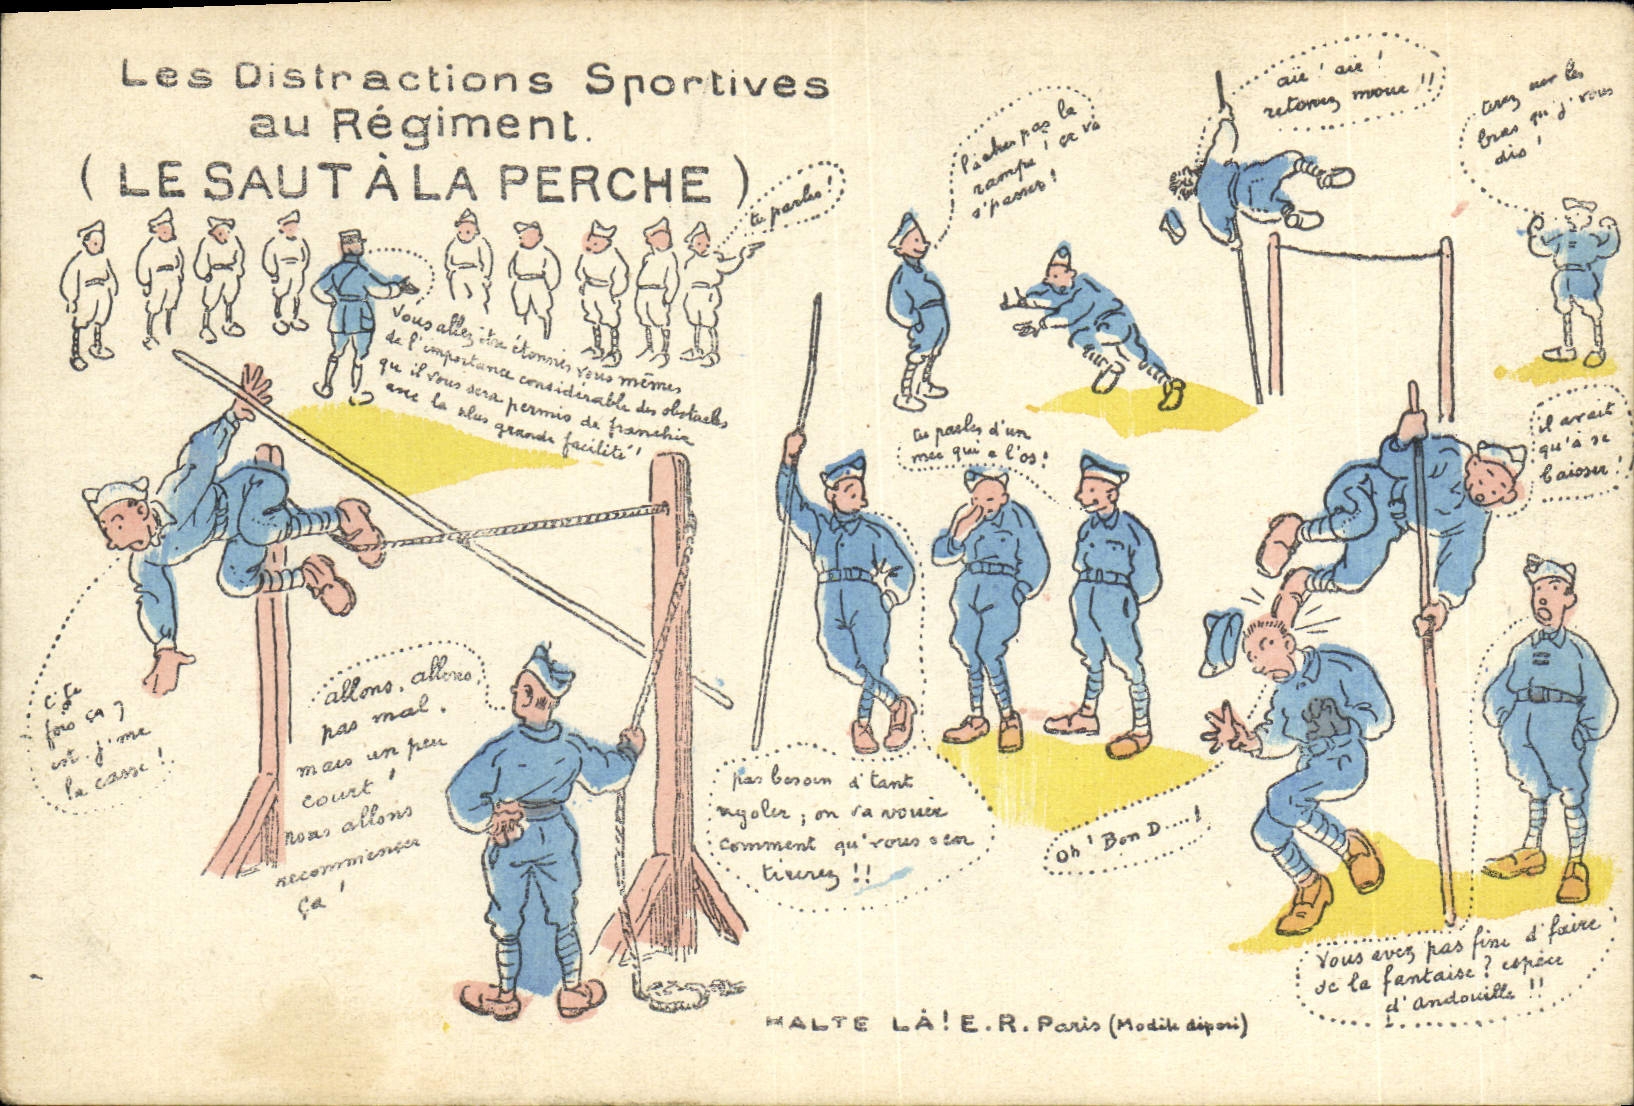 Les Distractions Sportives
au Régiment.
( LE SAUT À LA PERCHE )
tu parles !
Vous allez être étonnés vous mêmes
de l'importance considérable des obstacles
qu'il vous sera permis de franchir
avec la plus grande facilité !
Lâchez pas la
rampe ! ça va
s'passer !
aïe ! aïe !
retenez moue !!
tirez sur les
bras qu'j'vous
dis !
c'te
fois ça y
est j'me
la casse !
allons, allons,
pas mal.
mais un peu
court !
nous allons
recommencer
ça !
tu parles d'un
mec qui a l'os !
pas besoin d'tant
rigoler, on va vouèr
comment qu'vous s'en
tirerez !!
il avait
qu'à se
baisser !
Oh ! Bon D....!
Vous avez pas fini d'faire
de la fantaisie ? espèce
d'andouille !!
HALTE LÀ ! E.R. Paris (Modèle déposé)